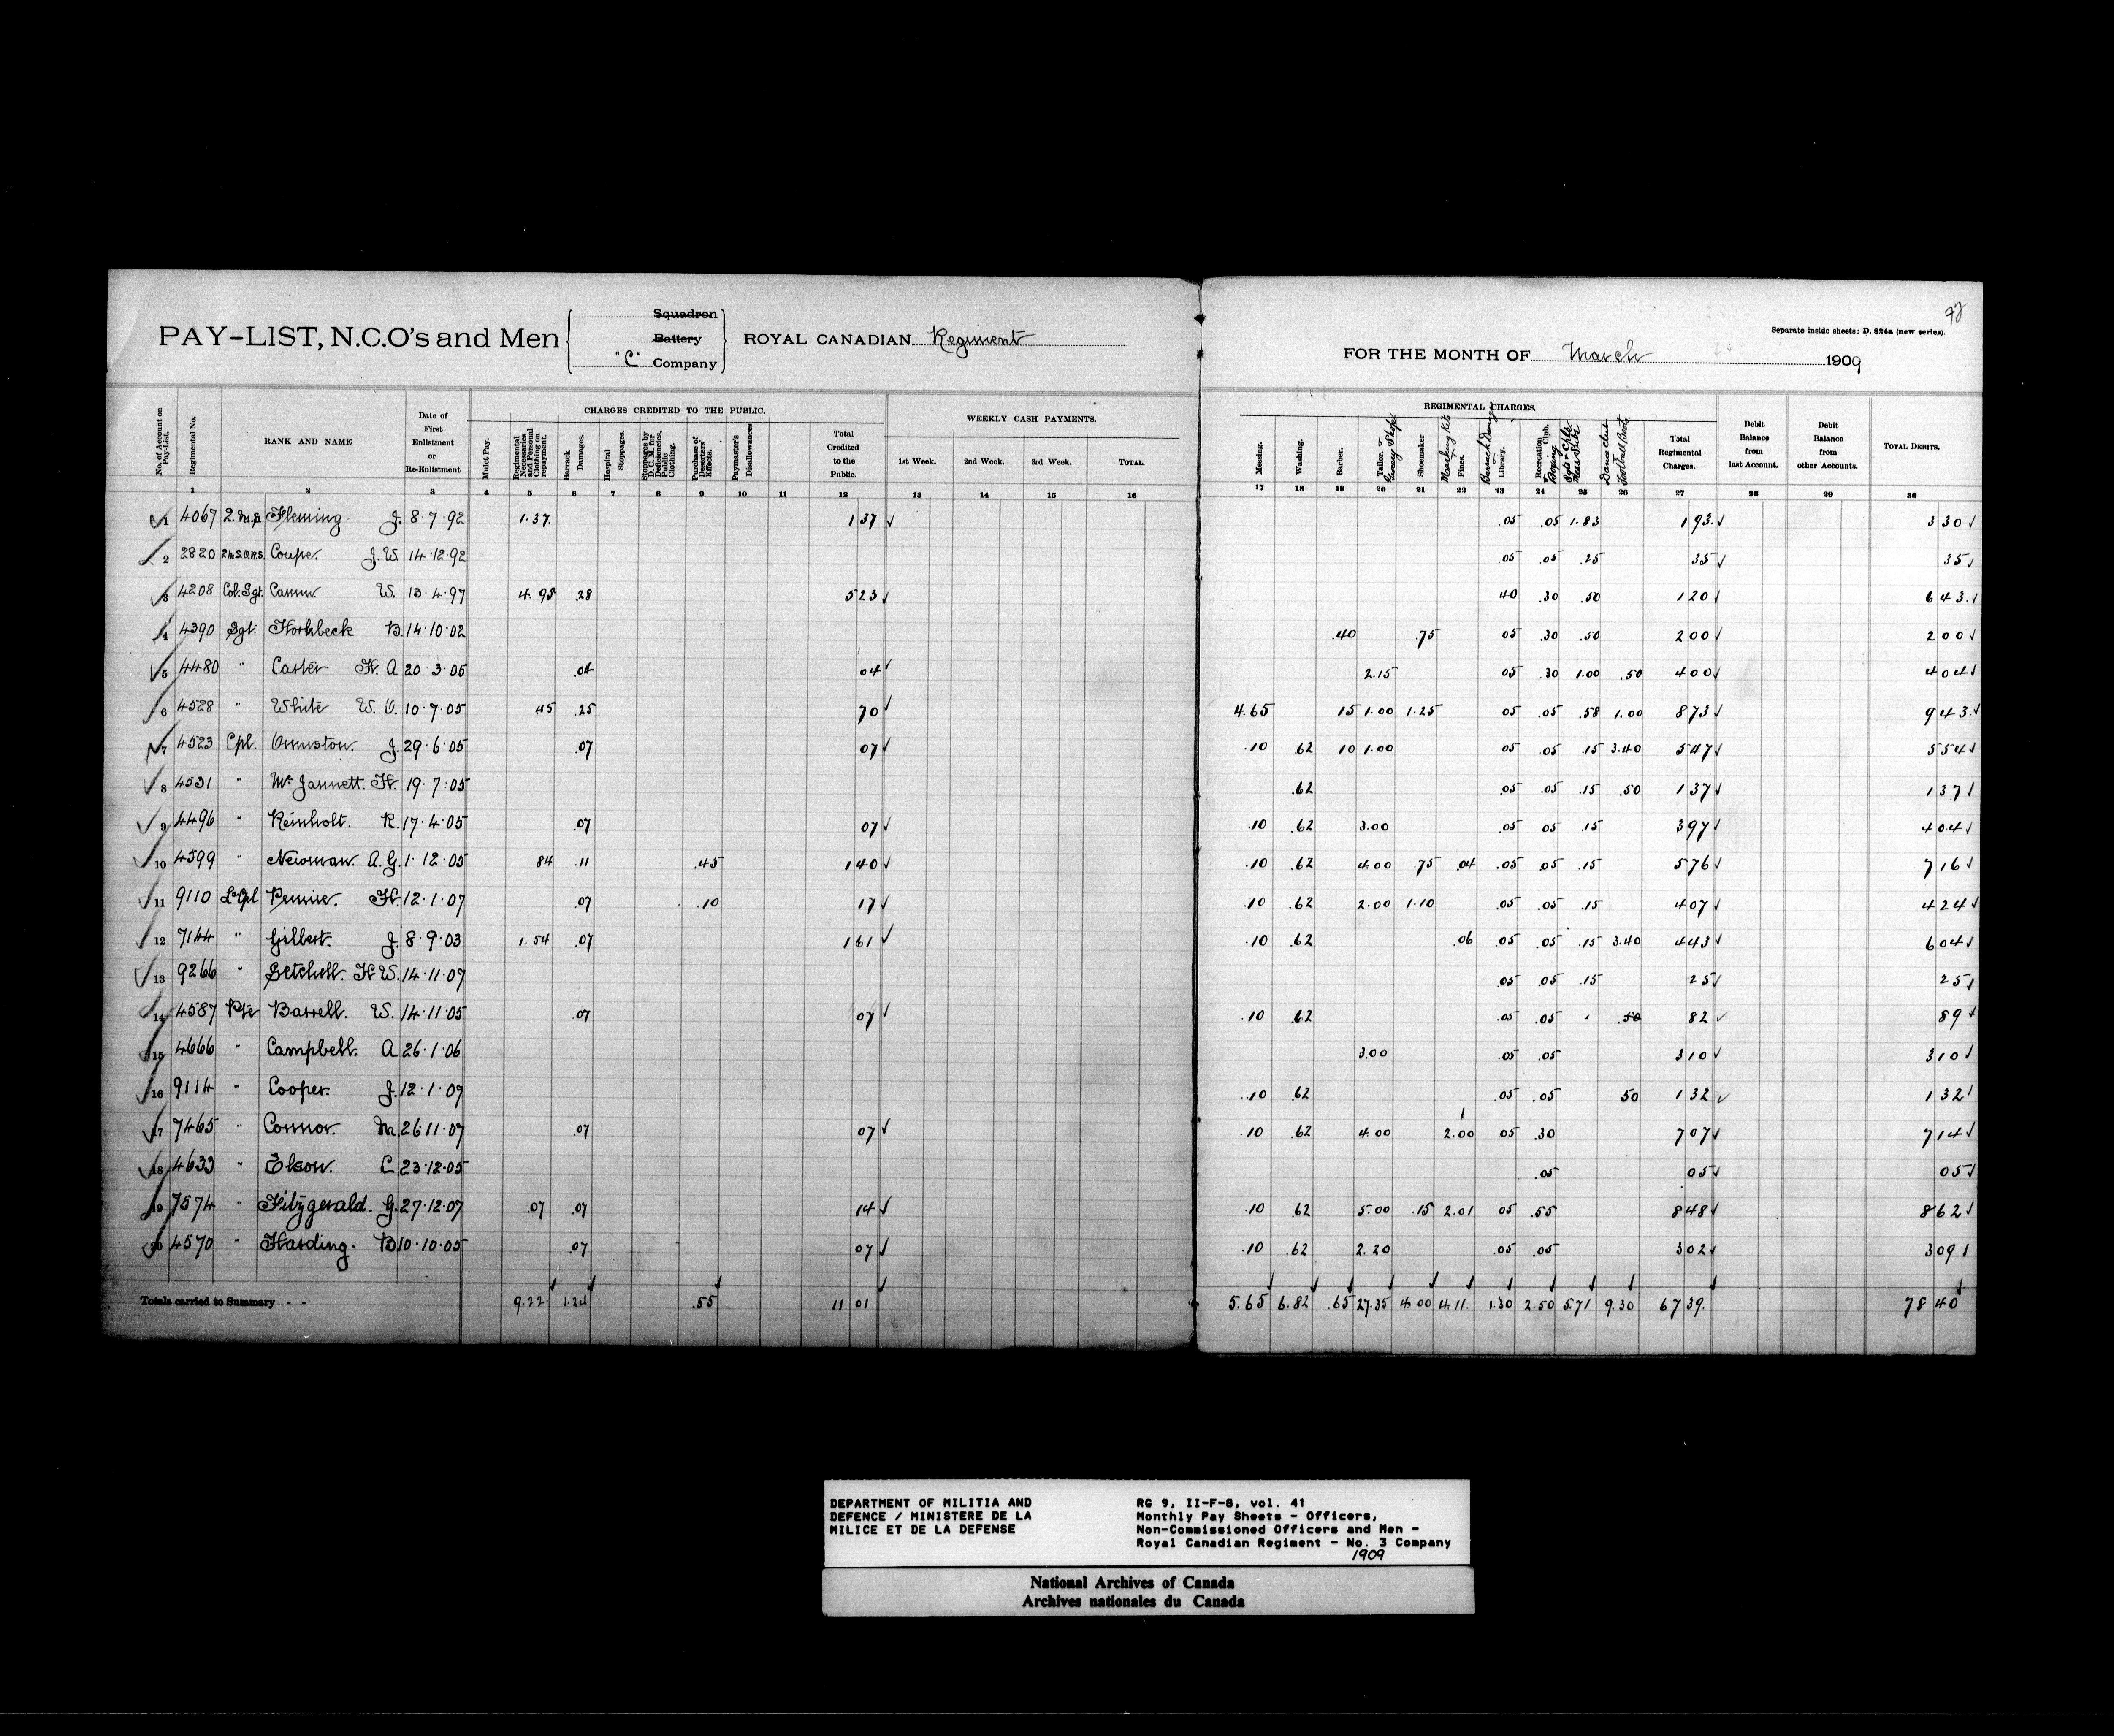 78
Separate inside sheets: D. 824a (new series).
PAY-LIST, N.C.O's and Men Squadron Battery "C" Company ROYAL CANADIAN Regiment
FOR THE MONTH OF March 1909
CHARGES CREDITED TO THE PUBLIC. WEEKLY CASH PAYMENTS. REGIMENTAL CHARGES.
No. of Account on Pay-List. Regimental No. RANK AND NAME Date of First Enlistment or Re-Enlistment Mulct Pay. Regimental Necessaries and Personal Clothing on repayment. Barrack Damages. Hospital Stoppages. Stoppages by D.C.M. for Deficiencies, Public Clothing. Purchase of Deserters' Effects. Paymaster's Disallowances Total Credited to the Public. 1st Week. 2nd Week. 3rd Week. TOTAL. Messing. Washing. Barber. Tailor. & Grocery Shop Shoemaker Marking Kits & Fines. Barrack Damages & Library. Recreation Club. Boxing Sgts & Cpls Mess Subs. Dance club Football Boots Total Regimental Charges. Debit Balance from last Account. Debit Balance from other Accounts. TOTAL DEBITS.
1 2 3 4 5 6 7 8 9 10 11 12 13 14 15 16 17 18 19 20 21 22 23 24 25 26 27 28 29 30
1 4067 Fleming J. 8·7·92 1.37 1 37 .05 .05 1.83 1 93 3 30
2 2820 Coupe. J. W. 14·12·92 .05 .05 .25 35 35
3 4208 Col. Sgt. W. 13·4·97 4.95 .28 5 23 40 .30 .50 1 20 6 43
4 4390 Sgt. Hornbeck B. 14·10·02 .40 .75 05 .30 .50 2 00 2 00
5 4480 " Carter H. A 20·3·05 .04 04 2.15 05 .30 1.00 .50 4 00 4 04
6 4528 " White W. V. 10·7·05 45 .25 70 4.65 15 1.00 1.25 05 .05 .58 1.00 8 73 9 43
7 4523 Cpl. Ormiston. J. 29·6·05 .07 07 .10 .62 10 1.00 05 .05 .15 3.40 5 47 5 54
8 4531 " McJannett. H. 19·7·05 .62 .05 .05 .15 .50 1 37 1 37
9 4496 " Reinholt. R. 17·4·05 .07 07 .10 .62 3.00 .05 05 .15 3 97 4 04
10 4599 " Newman. A. G. 1·12·05 84 .11 .45 1 40 .10 .62 4.00 .75 .04 .05 .05 .15 5 76 7 16
11 9110 L Cpl H. 12·1·07 .07 .10 17 .10 .62 2.00 1.10 .05 .05 .15 4 07 4 24
12 7144 " Gilbert. J. 8·9·03 1.54 .07 1 61 .10 .62 .06 .05 .05 .15 3.40 4 43 6 04
13 9266 " Setchell. H W. 14·11·07 05 .05 .15 25 25
14 4587 Pte Barrell. W. 14·11·05 .07 07 .10 .62 .05 .05 .50 82 89
15 4666 " Campbell. A 26·1·06 3.00 .05 .05 3 10 3 10
16 9114 " Cooper. J. 12·1·07 .10 .62 .05 .05 50 1 32 1 32
17 7465 " Connor. M. 26·11·07 .07 07 .10 .62 4.00 2.00 05 .30 7 07 7 14
18 4633 " Elson. C 23·12·05 .05 05 05
19 7574 " Fitzgerald. G. 27·12·07 .07 .07 14 .10 .62 5.00 .15 2.01 05 .55 8 48 8 62
20 4570 " Harding. B 10·10·05 .07 07 .10 .62 2.20 .05 .05 3 02 3 09
Totals carried to Summary - - 9.22 1.24 .55 11 01 5.65 6.82 .65 27.35 4.00 4.11 1.30 2.50 5.71 9.30 67 39 78 40
DEPARTMENT OF MILITIA AND
DEFENCE / MINISTERE DE LA
MILICE ET DE LA DEFENSE
RG 9, II-F-8, vol. 41
Monthly Pay Sheets - Officers,
Non-Commissioned Officers and Men -
Royal Canadian Regiment - No. 3 Company
1909
National Archives of Canada
Archives nationales du Canada